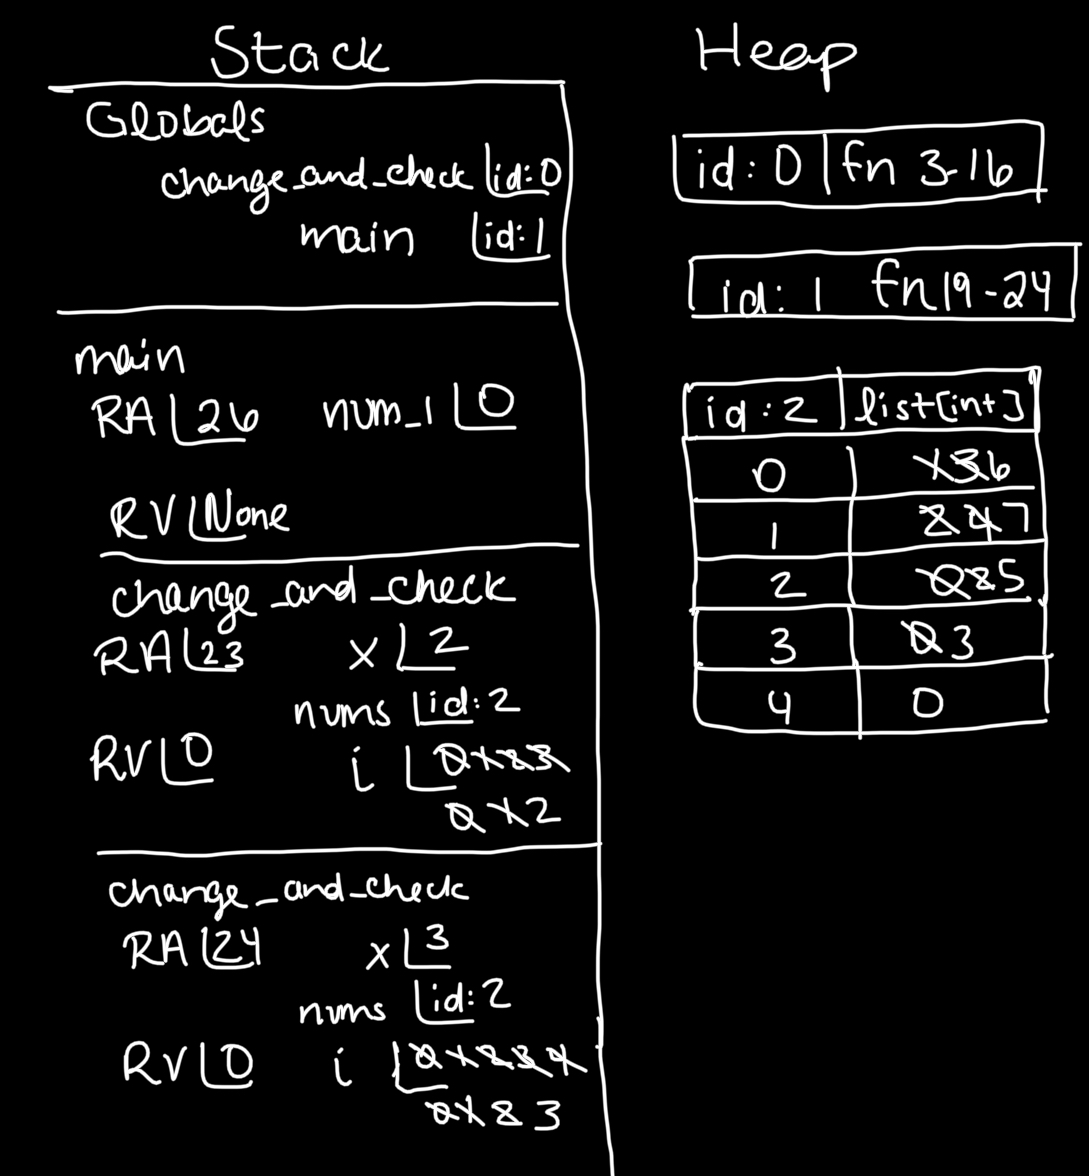 Stack
Globals
change_and_check id:0
main id:1
main
RA 26 num_1 0
RV None
change_and_check
RA 23 x 2
nums id:2
RV 0 i 0 1 2 3
0 1 2
change_and_check
RA 24 x 3
nums id:2
RV 0 i 0 1 2 3 4
0 1 2 3
Heap
id: 0 fn 3-16
id: 1 fn 19-24
id: 2 list[int]
0 1 3 6
1 2 4 7
2 0 2 5
3 0 3
4 0